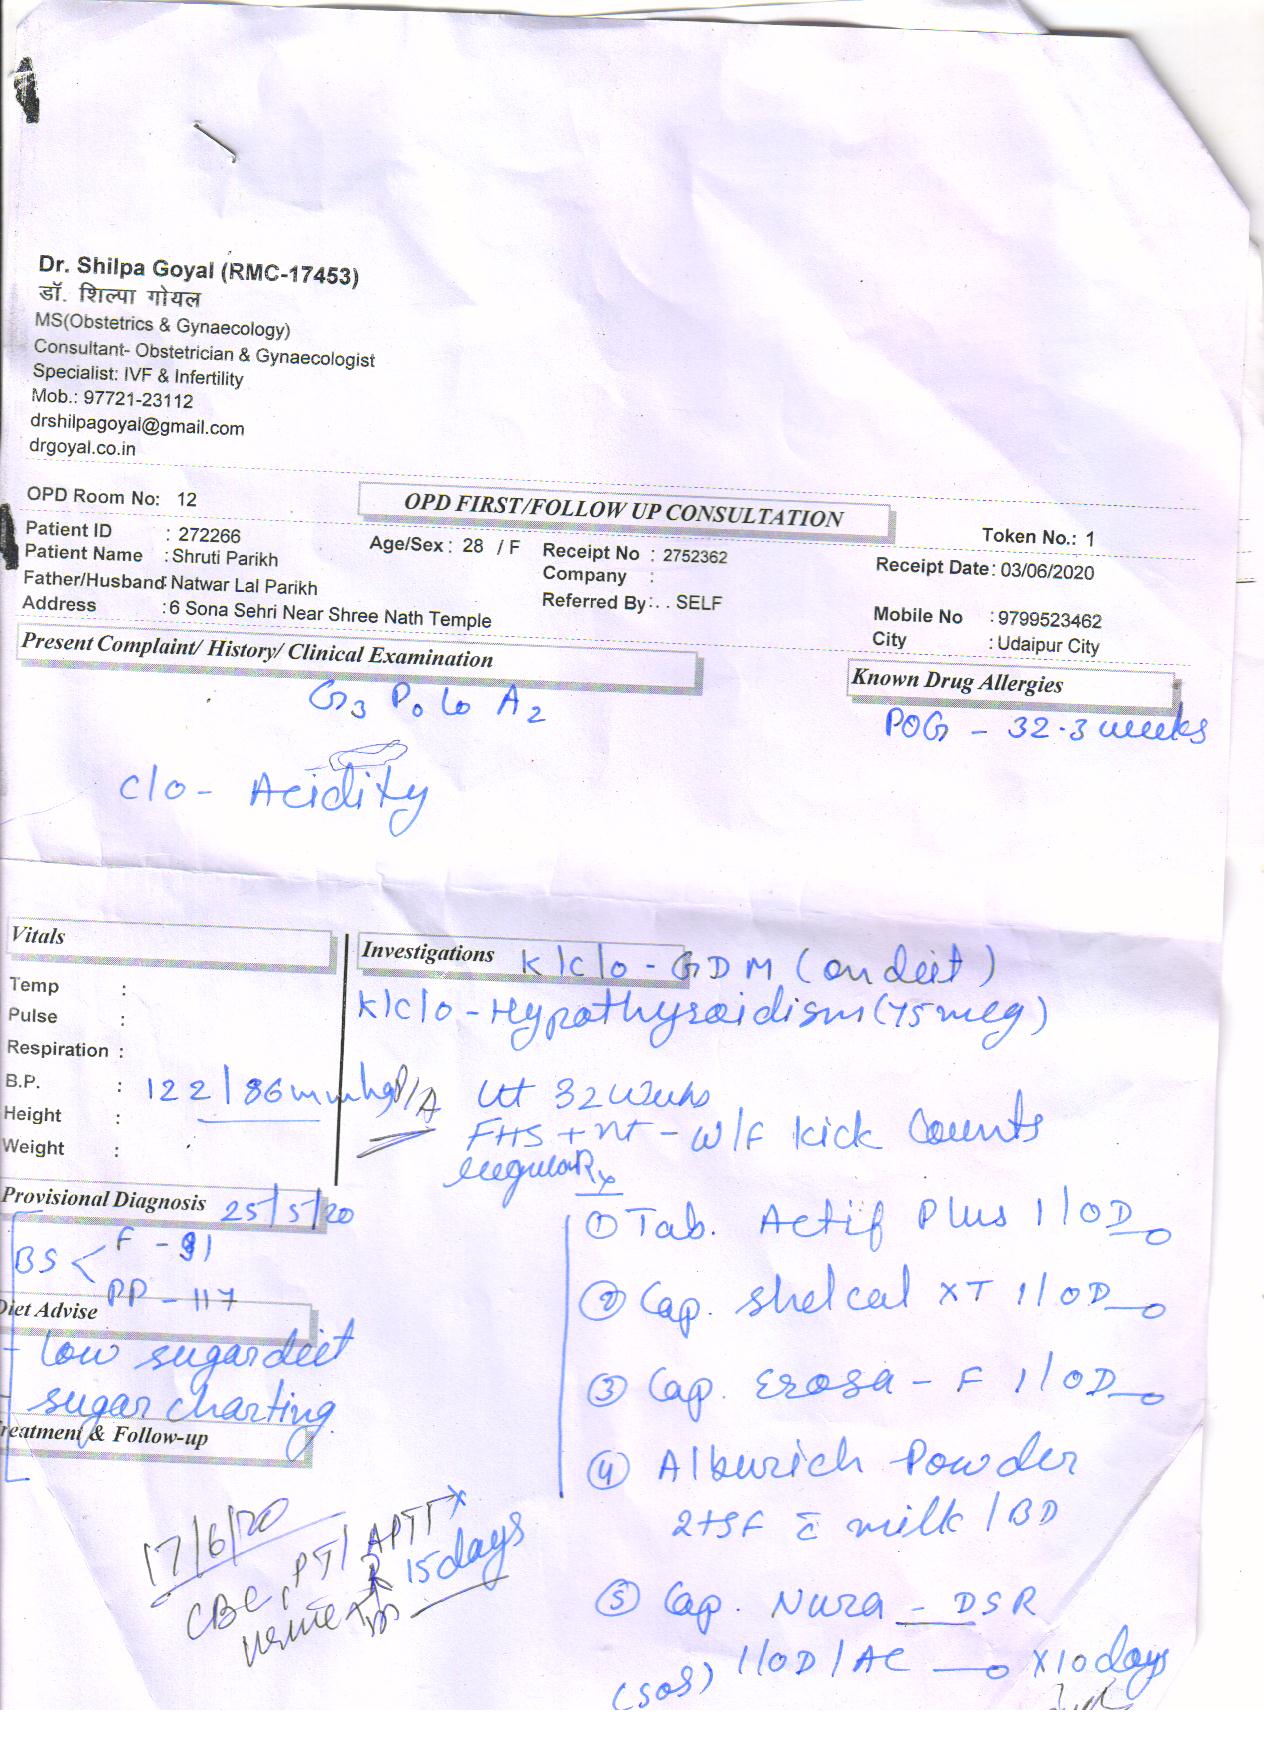 Dr. Shilpa Goyal (RMC-17453)
डॉ. शिल्पा गोयल
MS(Obstetrics & Gynaecology)
Consultant- Obstetrician & Gynaecologist
Specialist: IVF & Infertility
Mob.: 97721-23112
drshilpagoyal@gmail.com
drgoyal.co.in
OPD Room No: 12
OPD FIRST/FOLLOW UP CONSULTATION
Token No.: 1
Patient ID : 272266
Age/Sex : 28 / F
Receipt No : 2752362
Receipt Date: 03/06/2020
Patient Name : Shruti Parikh
Company :
Father/Husband: Natwar Lal Parikh
Referred By: . . SELF
Mobile No : 9799523462
Address : 6 Sona Sehri Near Shree Nath Temple
City : Udaipur City
Present Complaint/ History/ Clinical Examination
Known Drug Allergies
G3 P0 L0 A2
POG - 32.3 weeks
c/o - Acidity
Vitals
Investigations
K/c/o - GDM (on deit)
K/c/o - Hypothyroidism (75 mcg)
Temp :
Pulse :
Respiration :
B.P. : 122/86 mmhg
Height :
Weight :
P/A Ut 32 Weeks
FHS + nt - W/F kick Counts
regular
Rx
Provisional Diagnosis 25/5/20
BS < F - 91
PP - 117
Diet Advise
- low sugar deit
sugar charting
Treatment & Follow-up
17/6/20
CBC, PT/ APTT
urine
15 days
① Tab. Actif Plus 1/OD
② Cap. Shelcal XT 1/OD
③ Cap. Erosa - F 1/OD
④ Alburich Powder
2tsf c̄ milk / BD
⑤ Cap. Nura - DSR
(SOS) 1/OD/AC x 10 days